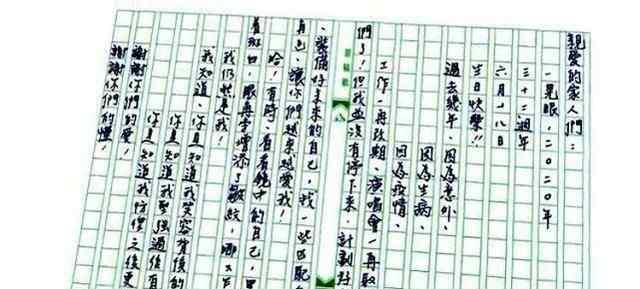 親愛的家人們：
一晃眼，二〇二〇年
三十二週年
六月十八日
生日快樂!!
過去幾年，因為意外、
因為生病、
因為疫情、
工作一再改期、演唱會一再取
們了！但我並沒有停下來，計劃好
、裝備好未來的自己，我一些匹配
自己，讓你們越來越愛我！
哈！有時，看看鏡中的自己，
着斑白，眼角增添了皺紋，哪
我仍然是我！
我知道、你真(知道我笑容背後的
你真(知道我堅強過後有
你真(知道我彷彿之後更
謝謝你們的愛！
謝謝你們的懂！